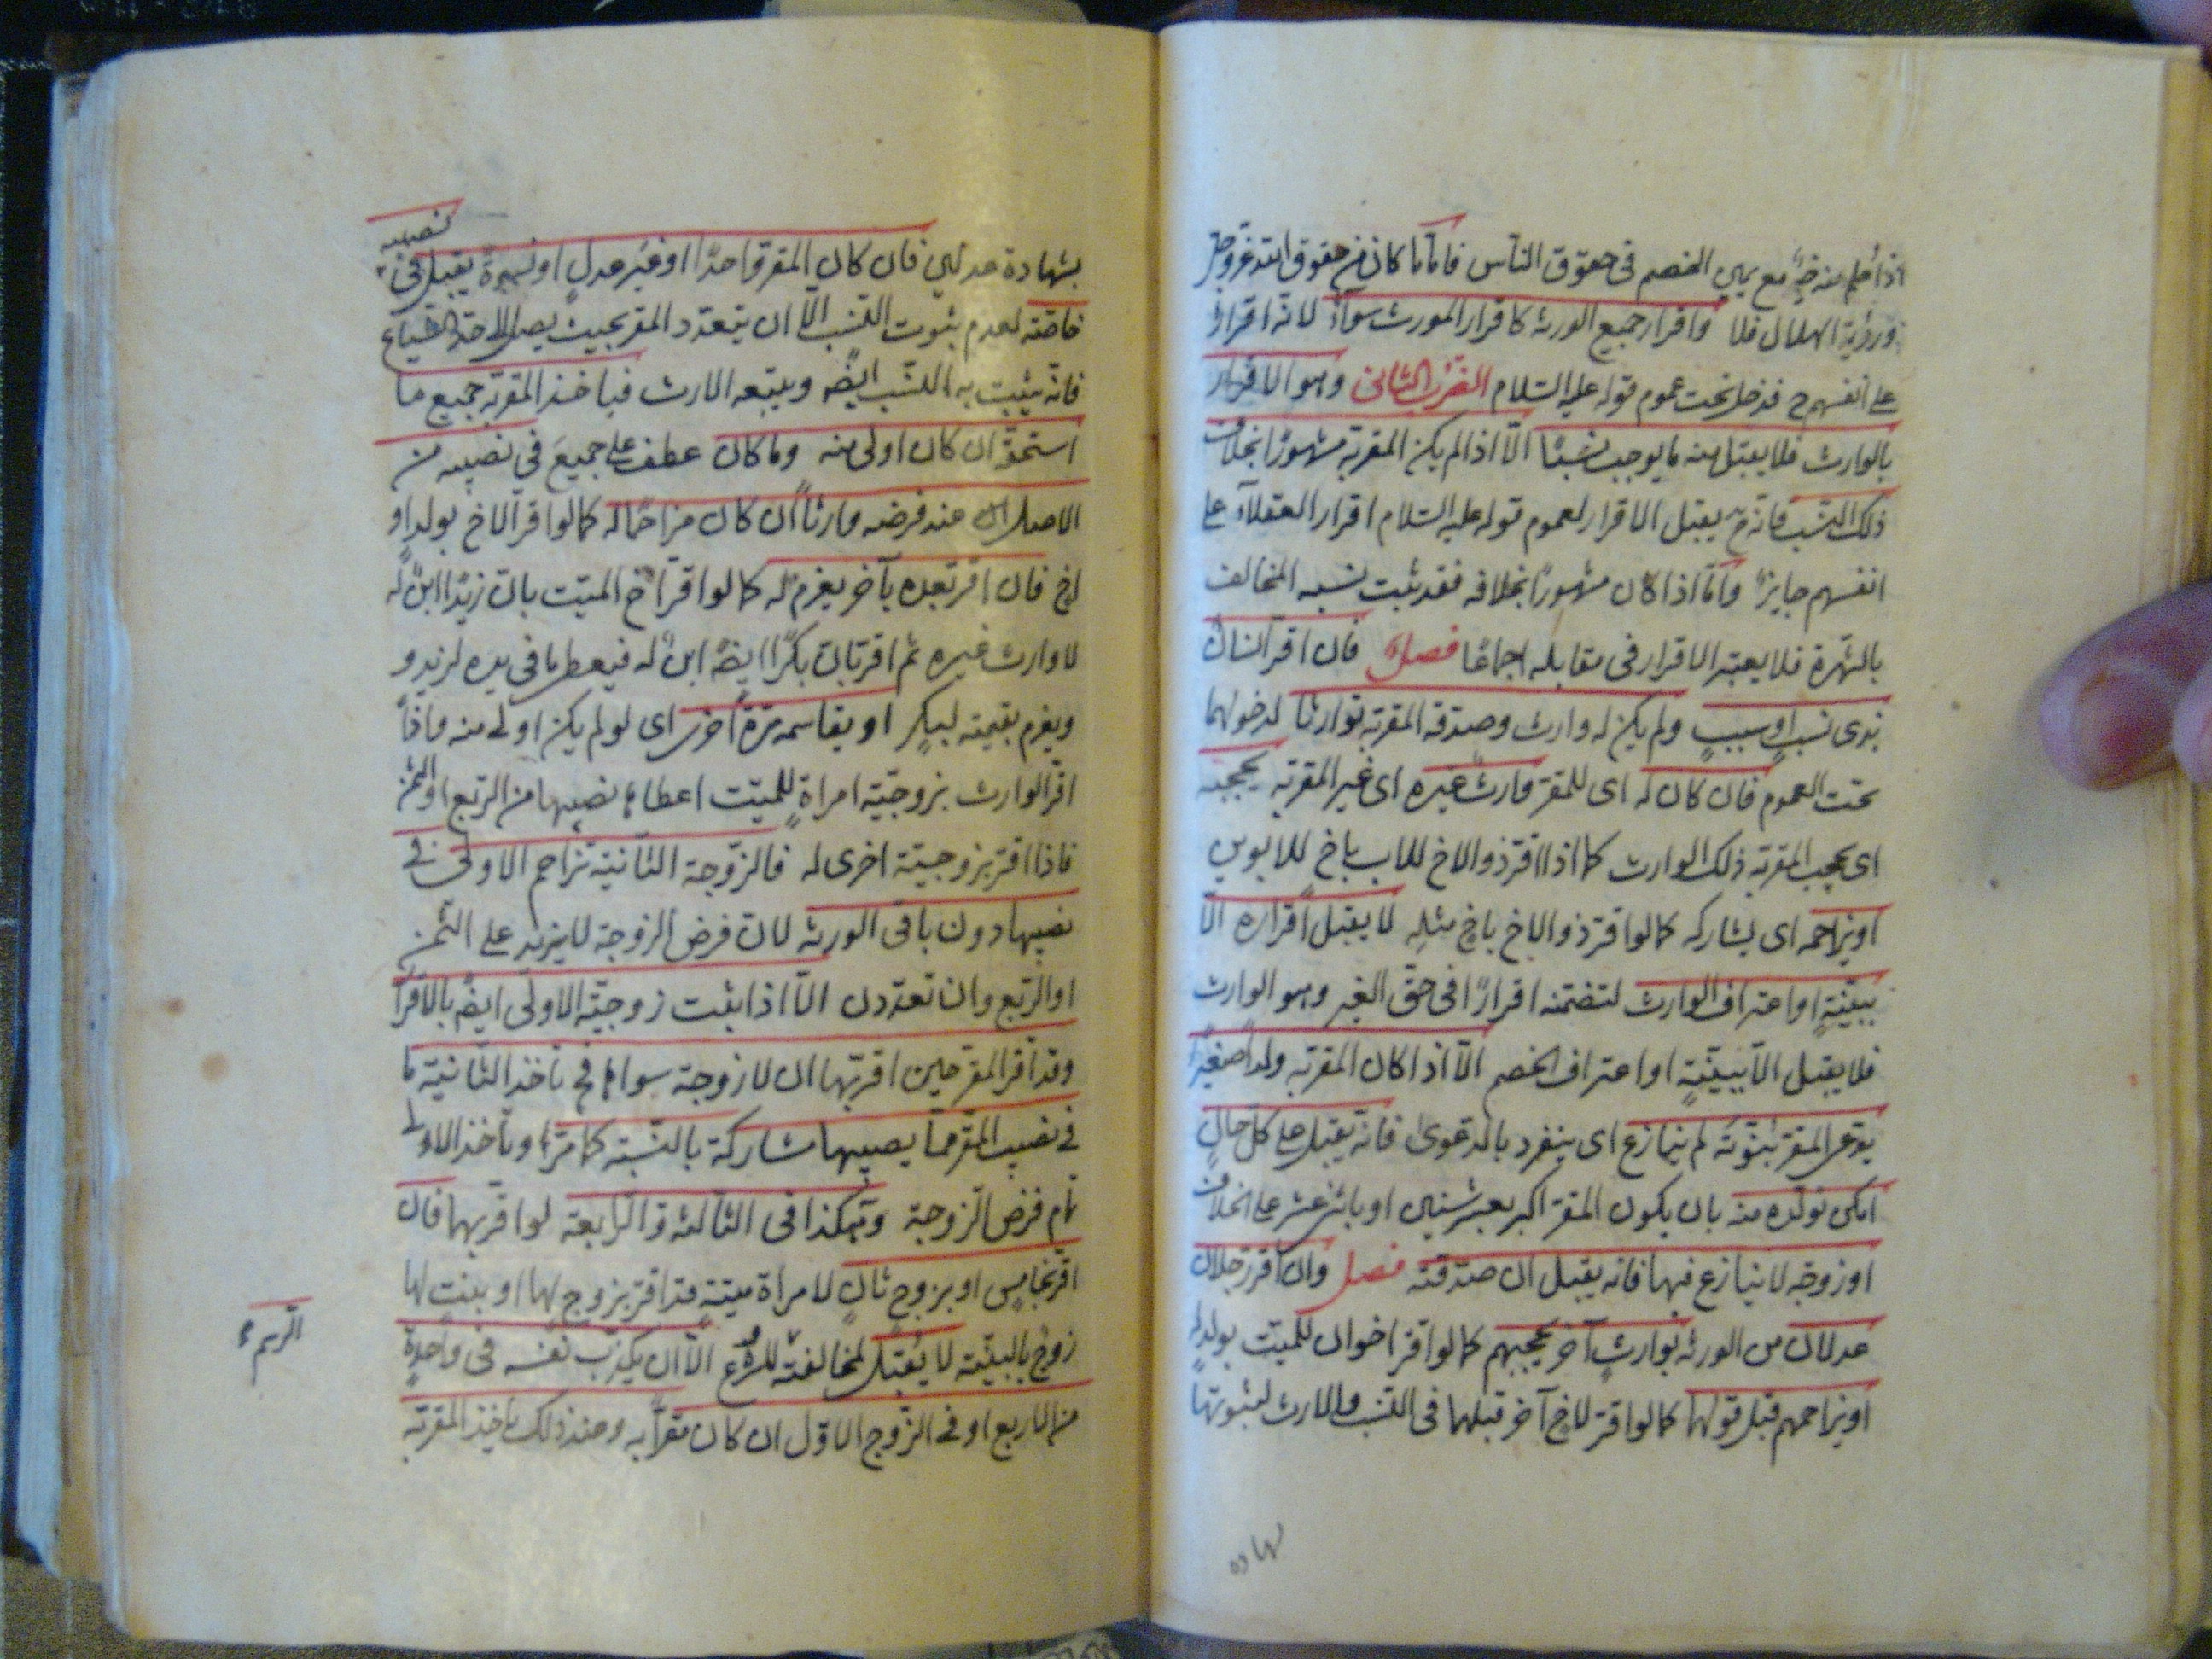 اذا علم منه مع يمين الخصم فى حقوق الناس فامّا ما كان من حقوق الله عزّ وجلّ
ورؤية الهلال فلا واقرار جميع الورثة كاقرار المورث سواءٌ لانّه اقرار
على انفسهم ح فدخل تحت عموم قوله عليه السّلام الضرب الثانى وهو الاقرار
بالوارث فلا يقبل منه ما يوجب نسبًا الّا اذا لم يكن المقرّ به مشهورًا بخلاف
ذلك النسب فانّه ح يقبل الاقرار لعموم قوله عليه السّلام اقرار العقلاء على
انفسهم جايزٌ وامّا اذا كان مشهورًا بخلافه فقد ثبت نسبه المخالف
بالشهرة فلا يعتبر الاقرار فى مقابله اجماعًا فصل فان اقرّ انسان
بذى نسبٍ او سببٍ ولم يكن له وارث وصدقه المقرّ به توارثا لدخولهما
تحت العموم فان كان له اى للمقرّ وارث غيره اى غير المقرّ به يحجبه
اى يحجب المقرّ به ذلك الوارث كما اذا اقرّ ذو الاخ للاب باخ للابوين
او يزاحمه اى يشاركه كما لو اقرّ ذو الاخ باخٍ مثله لا يقبل اقراره الّا
ببيّنةٍ او اعتراف الوارث لتضمّنه اقرارًا فى حقّ الغير وهو الوارث
فلا يقبل الّا ببيّنةٍ او اعتراف الخصم الّا اذا كان المقرّ به ولدًا صغيرًا
يدّعى المقرّ بنوّته لم ينازع اى ينفرد بالدعوى فانّه يقبل على كلّ حالٍ
امكن تولّده منه بان يكون المقرّ اكبر بعشر سنين او باثنى عشر على الخلاف
او زوجة لا ينازع فيها فانه يقبل ان صدّقته فصل وان اقرّ رجلان
عدلان من الورثه بوارثٍ آخر يحجبهم كما لو اقرّ اخوان للميّت بولدٍ له
او يزاحمهم قبل قولهما كما لو اقرّ لاخٍ آخر قبلهما فى النّسب والارث لثبوتهما
نصيبه
بشهادة عدلين فان كان المقرّ واحدًا او غير عدلٍ او نسوة يقبل فى
خاصّته لعدم ثبوت النّسب الّا ان يتعدّد المقرّ بحيث يصل الى حدّ الشّياع
فانّه يثبت به النّسب ايضً ويتبعه الارث فياخذ المقرّ به جميع ما
استحقّ ان كان اولى منه وما كان عطف على جميع فى نصيبه من
الاصل عند فرضه وارثاً ان كان مزاحمًا له كما لو اقرّ الاخ بولدٍ او
اخٍ فان اقرّ بعده بآخر يغرم له كما لو اقرّ اخ الميّت بانّ زيدًا ابنٌ له
لا وارث غيره ثم اقرّ بانّ بكرًا ايضً ابنٌ له فيعطى ما فى يده لزيد و
ويغرم بقيمته لبكرٍ او يقاسمه مرّةً اخرى اى لو لم يكن اولى منه واذا
اقرّ الوارث بزوجيّة امراةٍ للميّت اعطاها نصيبها من الرّبع او الثمن
فاذا اقرّ بزوجيّة اخرى له فالزّوجة الثّانية تزاحم الاولى فى
نصيبها دون باقى الورثه لانّ فرض الزوجة لا يزيد على الثّمن
او الرّبع وان تعدّدن الّا اذا ثبت زوجيّة الاولى ايضً بالاقرار
وقد اقرّ المقرّ حين اقرّ بها ان لا زوجة سواها فح تأخذ الثّانية ما
فى نصيب المقرّ ممّا يصيبها مشاركة بالنّسبة كما مرّ وتأخذ الاولى
تمام فرض الزّوجة وهكذا فى الثّالثه والرّابعة لو اقرّ بهما فان
اقرّ بخامسٍ او بزوجٍ ثانٍ لامراة ميتةٍ قد اقرّ بزوجٍ لها او ببنتٍ لها
زوجٌ بالبيّنة لا يُقبل لمخالفته للشّرع الّا ان يكذّب نفسه فى واحدةٍ
من الاربع او فى الزّوج الاوّل ان كان مقرّاً به وعند ذلك ياخذ المقرّ به